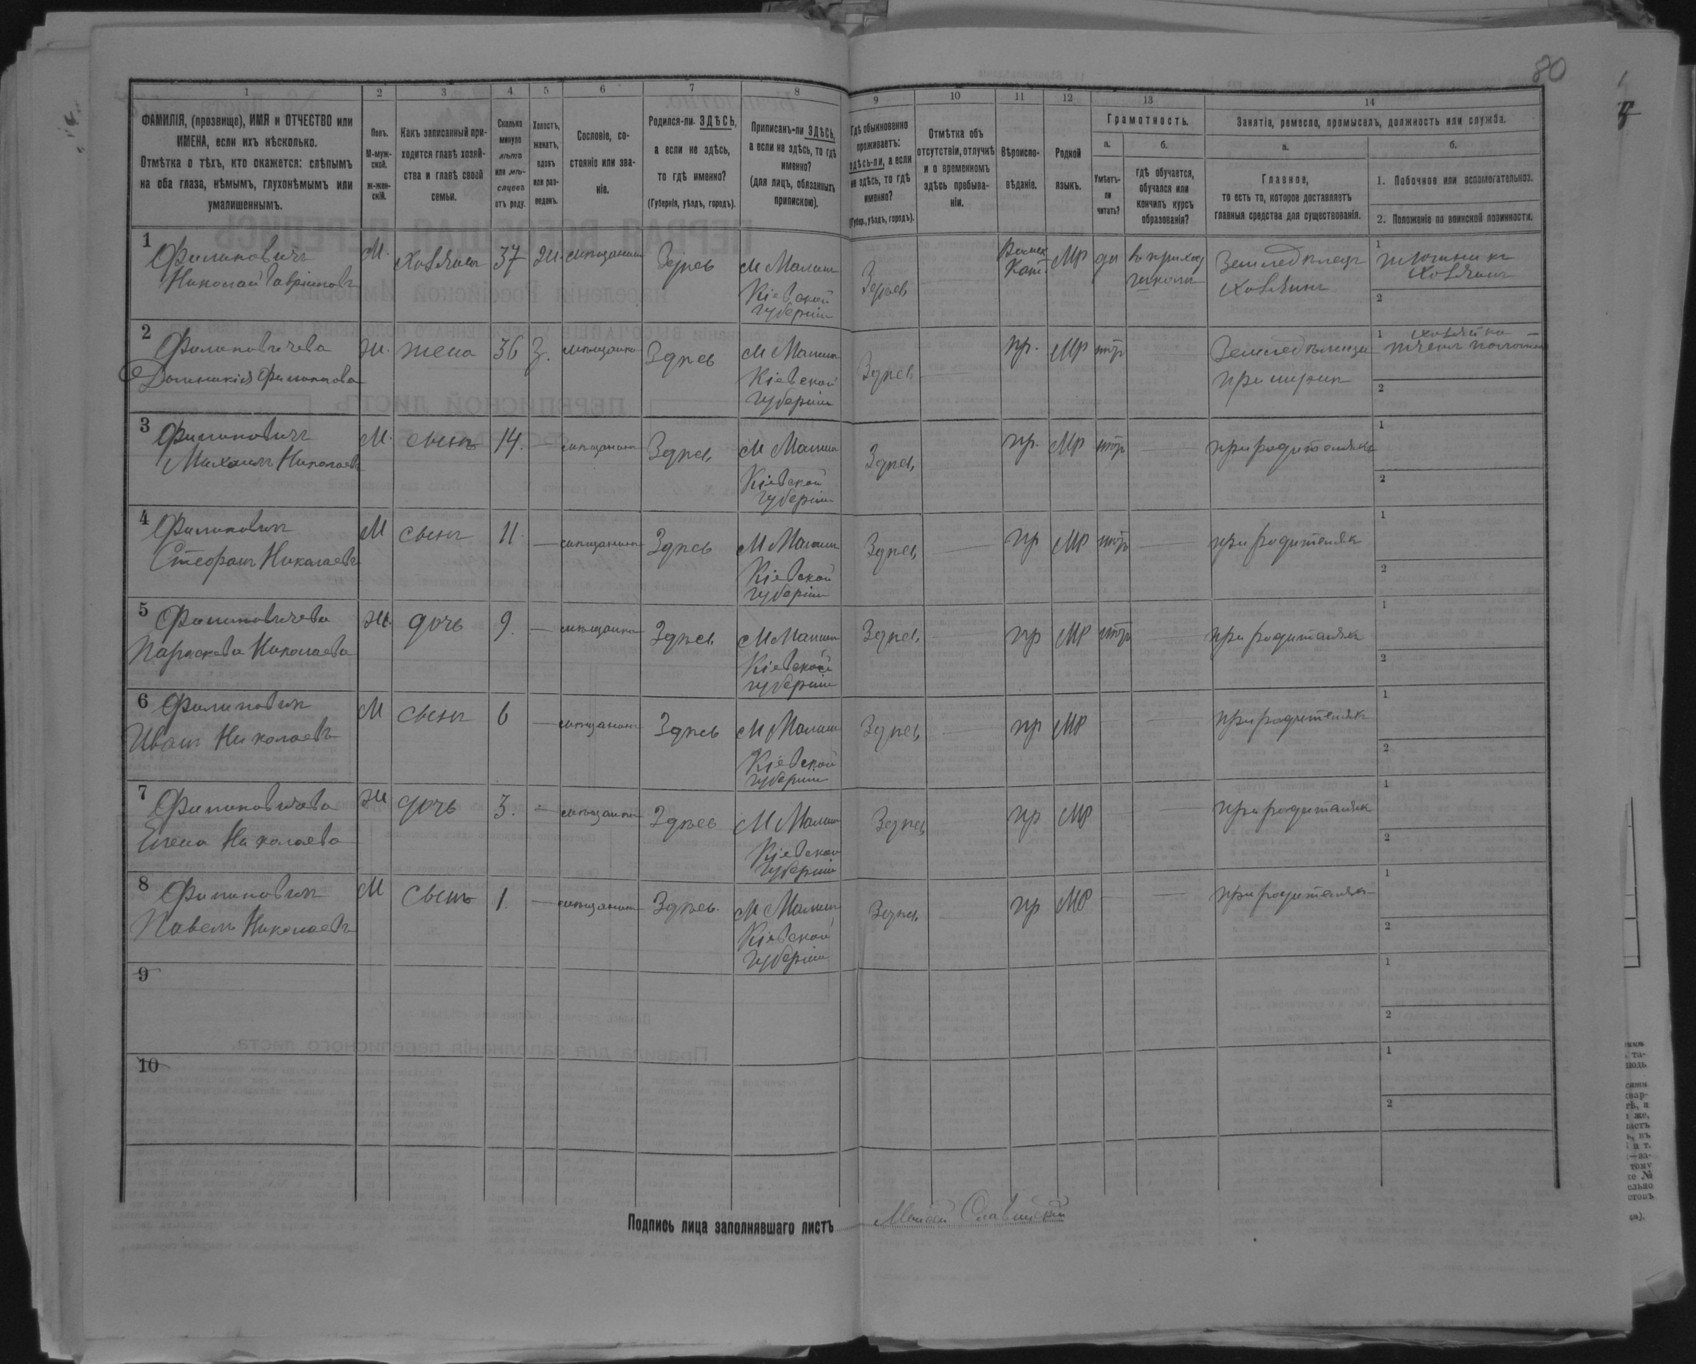 80
1 2 3 4 5 6 7 8 9 10 11 12 13 14
ФАМИЛІЯ, (прозвище), ИМЯ и ОТЧЕСТВО или
ИМЕНА, если ихъ нѣсколько.
Отмѣтка о тѣхъ, кто окажется: слѣпымъ
на оба глаза, нѣмымъ, глухонѣмымъ или
умалишеннымъ.
Полъ.
М-муж-
ской.
ж-жен-
скій.
Какъ записанный при-
ходится главѣ хозяй-
ства и главѣ своей
семьи.
Сколько
минуло
лѣтъ
или мѣ-
сяцевъ
отъ роду.
Холостъ,
женатъ,
вдовъ
или раз-
веденъ.
Сословіе, со-
стояніе или зва-
ніе.
Родился-ли ЗДѢСЬ,
а если не здѣсь,
то гдѣ именно?
(Губернія, уѣздъ, городъ).
Приписанъ-ли ЗДѢСЬ,
а если не здѣсь, то гдѣ
именно?
(для лицъ, обязанныхъ
припискою).
Гдѣ обыкновенно
проживаетъ:
здѣсь-ли, а если
не здѣсь, то гдѣ
именно?
(Губер., уѣздъ, городъ).
Отмѣтка объ
отсутствіи, отлучкѣ
и о временномъ
здѣсь пребыва-
ніи.
Вѣроиспо-
вѣданіе.
Родной
языкъ.
Грамотность.
а.
Умѣетъ-
ли
читать?
б.
гдѣ обучается,
обучался или
кончилъ курсъ
образованія?
Занятіе, ремесло, промыселъ, должность или служба.
а.
Главное,
то есть то, которое доставляетъ
главныя средства для существованія.
б.
1. Побочное или вспомогательное.
2. Положеніе по воинской повинности.
1 Филиповичъ М. хозяинъ 37 ж. мѣщанинъ Здѣсь м Малинъ Здѣсь МР да Земледѣлецъ 1
Николай Кіевской школѣ хозяинъ хозяинъ
губерніи 2
2 Филиповичева ж. жена 36 З. мѣщанка Здѣсь м Малинъ Здѣсь пр. МР нтр 1 хозяйка
Филиппова Кіевской при мужѣ
губерніи 2
3 Филиповичъ М. сынъ 14. — мѣщанинъ Здѣсь м Малинъ Здѣсь пр. МР нтр при родителяхъ 1
Михаилъ Николаевъ Кіевской 2
губерніи
4 Филиповичъ М сынъ 11 — мѣщанинъ Здѣсь м Малинъ Здѣсь пр МР нтр при родителяхъ 1
Стефанъ Николаевъ Кіевской 2
губерніи
5 Филиповичева ж. дочь 9. — мѣщанка Здѣсь м Малинъ Здѣсь пр МР нтр при родителяхъ 1
Параскева Николаева Кіевской 2
губерніи
6 Филиповичъ М сынъ 6 — мѣщанинъ Здѣсь м Малинъ Здѣсь пр МР при родителяхъ 1
Иванъ Николаевъ Кіевской 2
губерніи
7 Филиповичева ж дочь 3. — мѣщанка Здѣсь м Малинъ Здѣсь пр МР при родителяхъ 1
Елена Николаева Кіевской 2
губерніи
8 Филиповичъ М сынъ 1. — мѣщанинъ Здѣсь м Малинъ Здѣсь пр МР при родителяхъ 1
Павелъ Николаевъ Кіевской 2
губерніи
9 1
2
10 1
2
Подпись лица заполнявшаго листъ